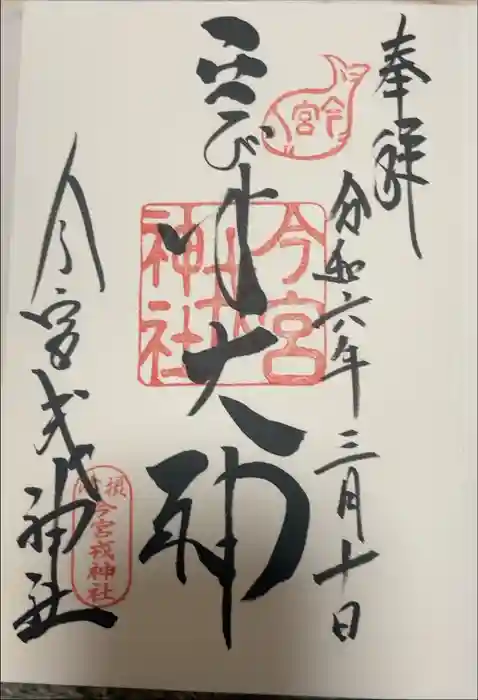 奉拝
令和六年三月十日
今宮
び 大神
今宮
戎
神社
今宮戎神社
摂津
今宮戎神社